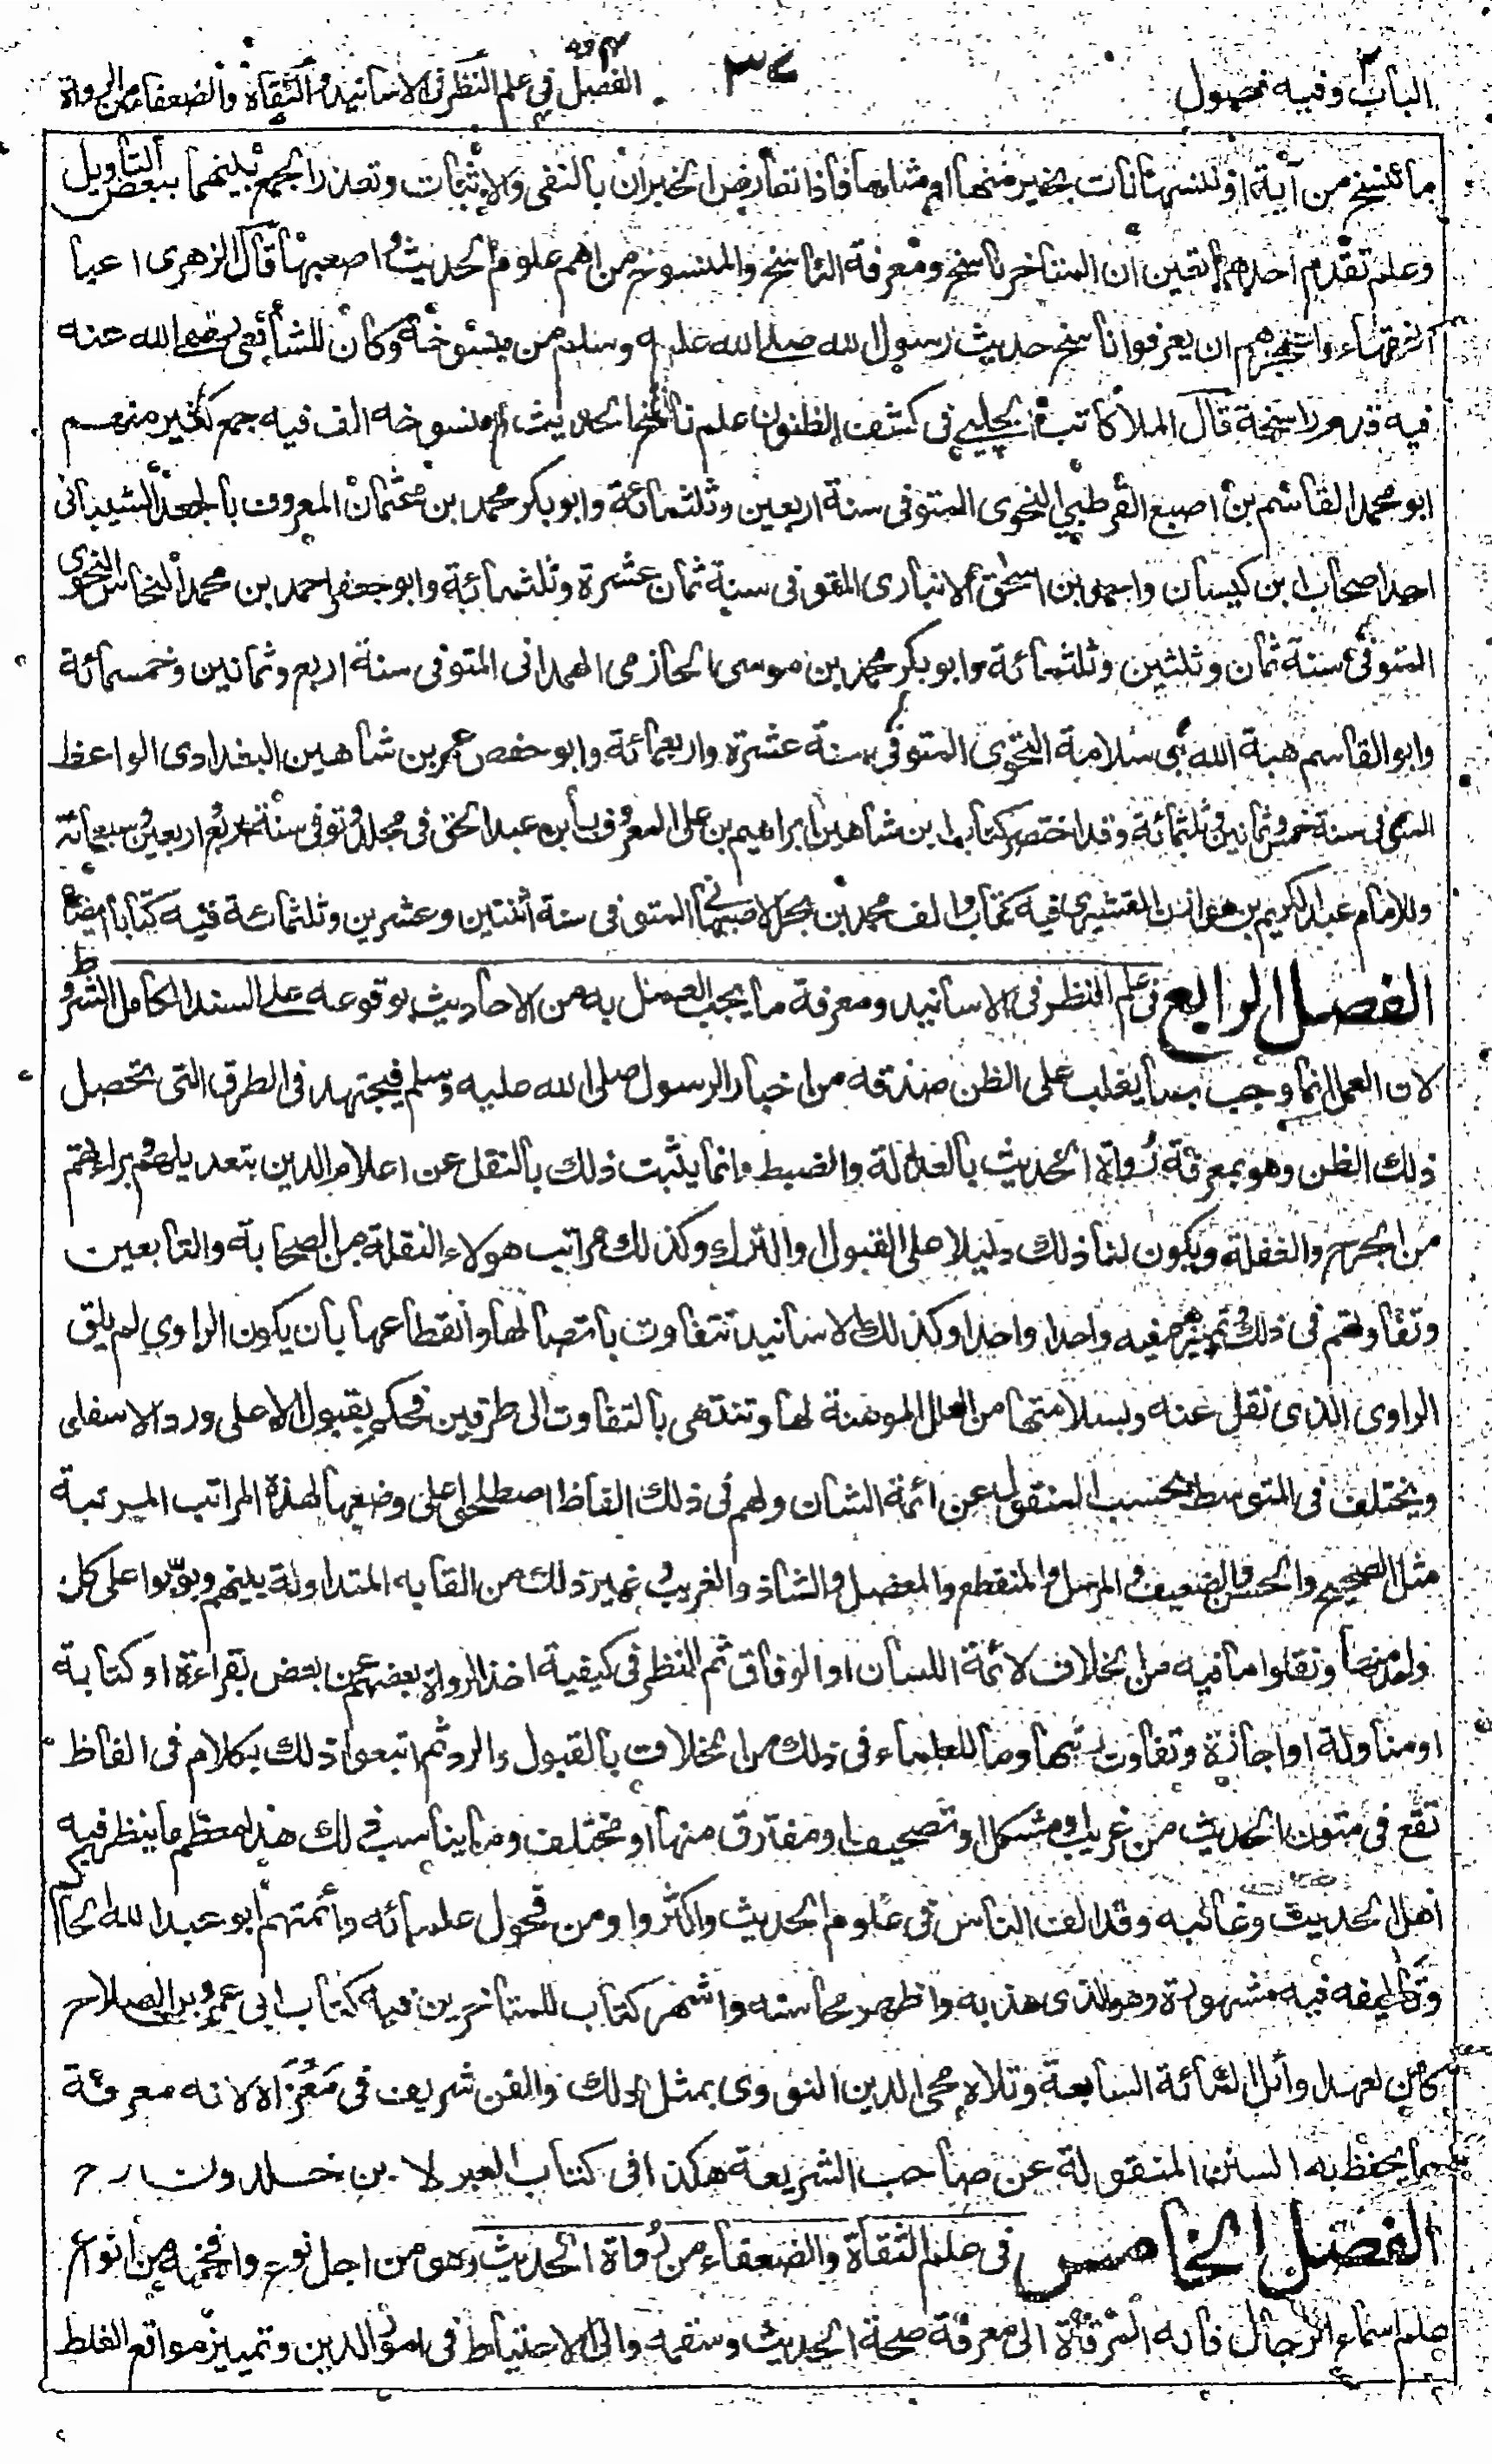 الباب ٢ وفيه فصول
٣٤
الفصل ٤ و ٥ في علم النظر في الاسانيد والثقاة والضعفاء من الرواة
ما ننسخ من آية او ننسها نات بخير منها او مثلها فاذا تعارض الخبران بالنفي والاثبات وتعذر الجمع بينهما ببعض التاويل
وعلم تقدم احدهما تعين ان المتاخر ناسخ ومعرفة الناسخ والمنسوخ من اهم علوم الحديث واصعبها قال الزهري اعيا
الفقهاء واعجزهم ان يعرفوا ناسخ حديث رسول الله صلى الله عليه وسلم من منسوخه وكان للشافعي رضي الله عنه
فيه قدم راسخة قال الملا كاتب الجلبي في كشف الظنون علم ناسخ الحديث ومنسوخه الف فيه جمع كثير منهم
ابو محمد القاسم بن اصبغ القرطبي النحوي المتوفى سنة اربعين وثلثمائة وابو بكر محمد بن عثمان المعروف بالجعد الشيباني
احد اصحاب ابن كيسان واحمد بن اسحق الانباري المتوفى سنة ثمان عشرة وثلثمائة وابو جعفر احمد بن محمد النحاس النحوي
المتوفى سنة ثمان وثلثين وثلثمائة وابو بكر محمد بن موسى الحازمي الهمداني المتوفى سنة اربع وثمانين وخمسمائة
وابو القاسم هبة الله بن سلامة النحوي المتوفى سنة عشرة واربعمائة وابو حفص عمر بن شاهين البغدادي الواعظ
المتوفى سنة خمس وثمانين وثلثمائة وقد اختصر كتاب ابن شاهين ابراهيم بن علي المعروف بابن عبد الحق في مجلد وتوفى سنة اربع اربعين وسبعمائة
وللامام عبد الكريم بن هوازن القشيري فيه كتاب والف محمد بن بحر الاصبهاني المتوفى سنة اثنتين وعشرين وثلثمائة فيه كتابا ايضا
الفصل الرابع في علم النظر في الاسانيد ومعرفة ما يجب العمل به من الاحاديث بوقوعه على السند الكامل الشروط
لان العمل انما وجب بما يغلب على الظن صدقه من اخبار الرسول صلى الله عليه وسلم فيجتهد في الطرق التي تحصل
ذلك الظن وهو بمعرفة رواة الحديث بالعدالة والضبط وانما يثبت ذلك بالنقل عن اعلام الدين بتعديلهم وبراءتهم
من الجرح والغفلة ويكون لنا ذلك دليلا على القبول والترك وكذلك مراتب هولاء النقلة من الصحابة والتابعين
وتفاوتهم في ذلك تميزهم فيه واحدا واحدا وكذلك الاسانيد تتفاوت باتصالها وانقطاعها بان يكون الراوي لم يلق
الراوي الذي نقل عنه وبسلامتها من العلل الموهنة لها وتنتهي بالتفاوت الى طرفين فحكم بقبول الاعلى ورد الاسفل
ويختلف في المتوسط بحسب المنقول عن ائمة الشان ولهم في ذلك الفاظ اصطلحوا على وضعها لهذه المراتب المرتبة
مثل الصحيح والحسن والضعيف والمرسل والمنقطع والمعضل والشاذ والغريب وغير ذلك من القابه المتداولة بينهم وبوبوا على كل
واحد منها ونقلوا ما فيه من الخلاف لائمة اللسان او الوفاق ثم النظر في كيفية اخذ الرواة بعضهم عن بعض بقراءة او كتابة
او مناولة او اجازة وتفاوت رتبها وما للعلماء في ذلك من الخلاف بالقبول والرد ثم اتبعوا ذلك بكلام في الفاظ
تقع في متون الحديث من غريب او مشكل او تصحيف او مفترق منها او مختلف وما يناسب ذلك هذا معظم ما ينظر فيه
اهل الحديث وغالبه وقد الف الناس في علوم الحديث واكثروا ومن فحول علمائه وائمتهم ابو عبد الله الحاكم
وتآليفه فيه مشهورة وهو الذي هذبه واظهر محاسنه واشهر كتاب للمتاخرين فيه كتاب ابي عمرو بن الصلاح
كان لعهد اوائل المائة السابعة وتلاه محي الدين النووي بمثل ذلك والفن شريف في مغزاه لانه معرفة
ما يحفظ به السنن المنقولة عن صاحب الشريعة هكذا في كتاب العبر لابن خلدون رح
الفصل الخامس في علم الثقاة والضعفاء من رواة الحديث وهو من اجل نوع وافخمه من انواع
علم اسماء الرجال فانه المرقاة الى معرفة صحة الحديث وسقمه والى الاحتياط في امور الدين وتمييز مواقع الغلط